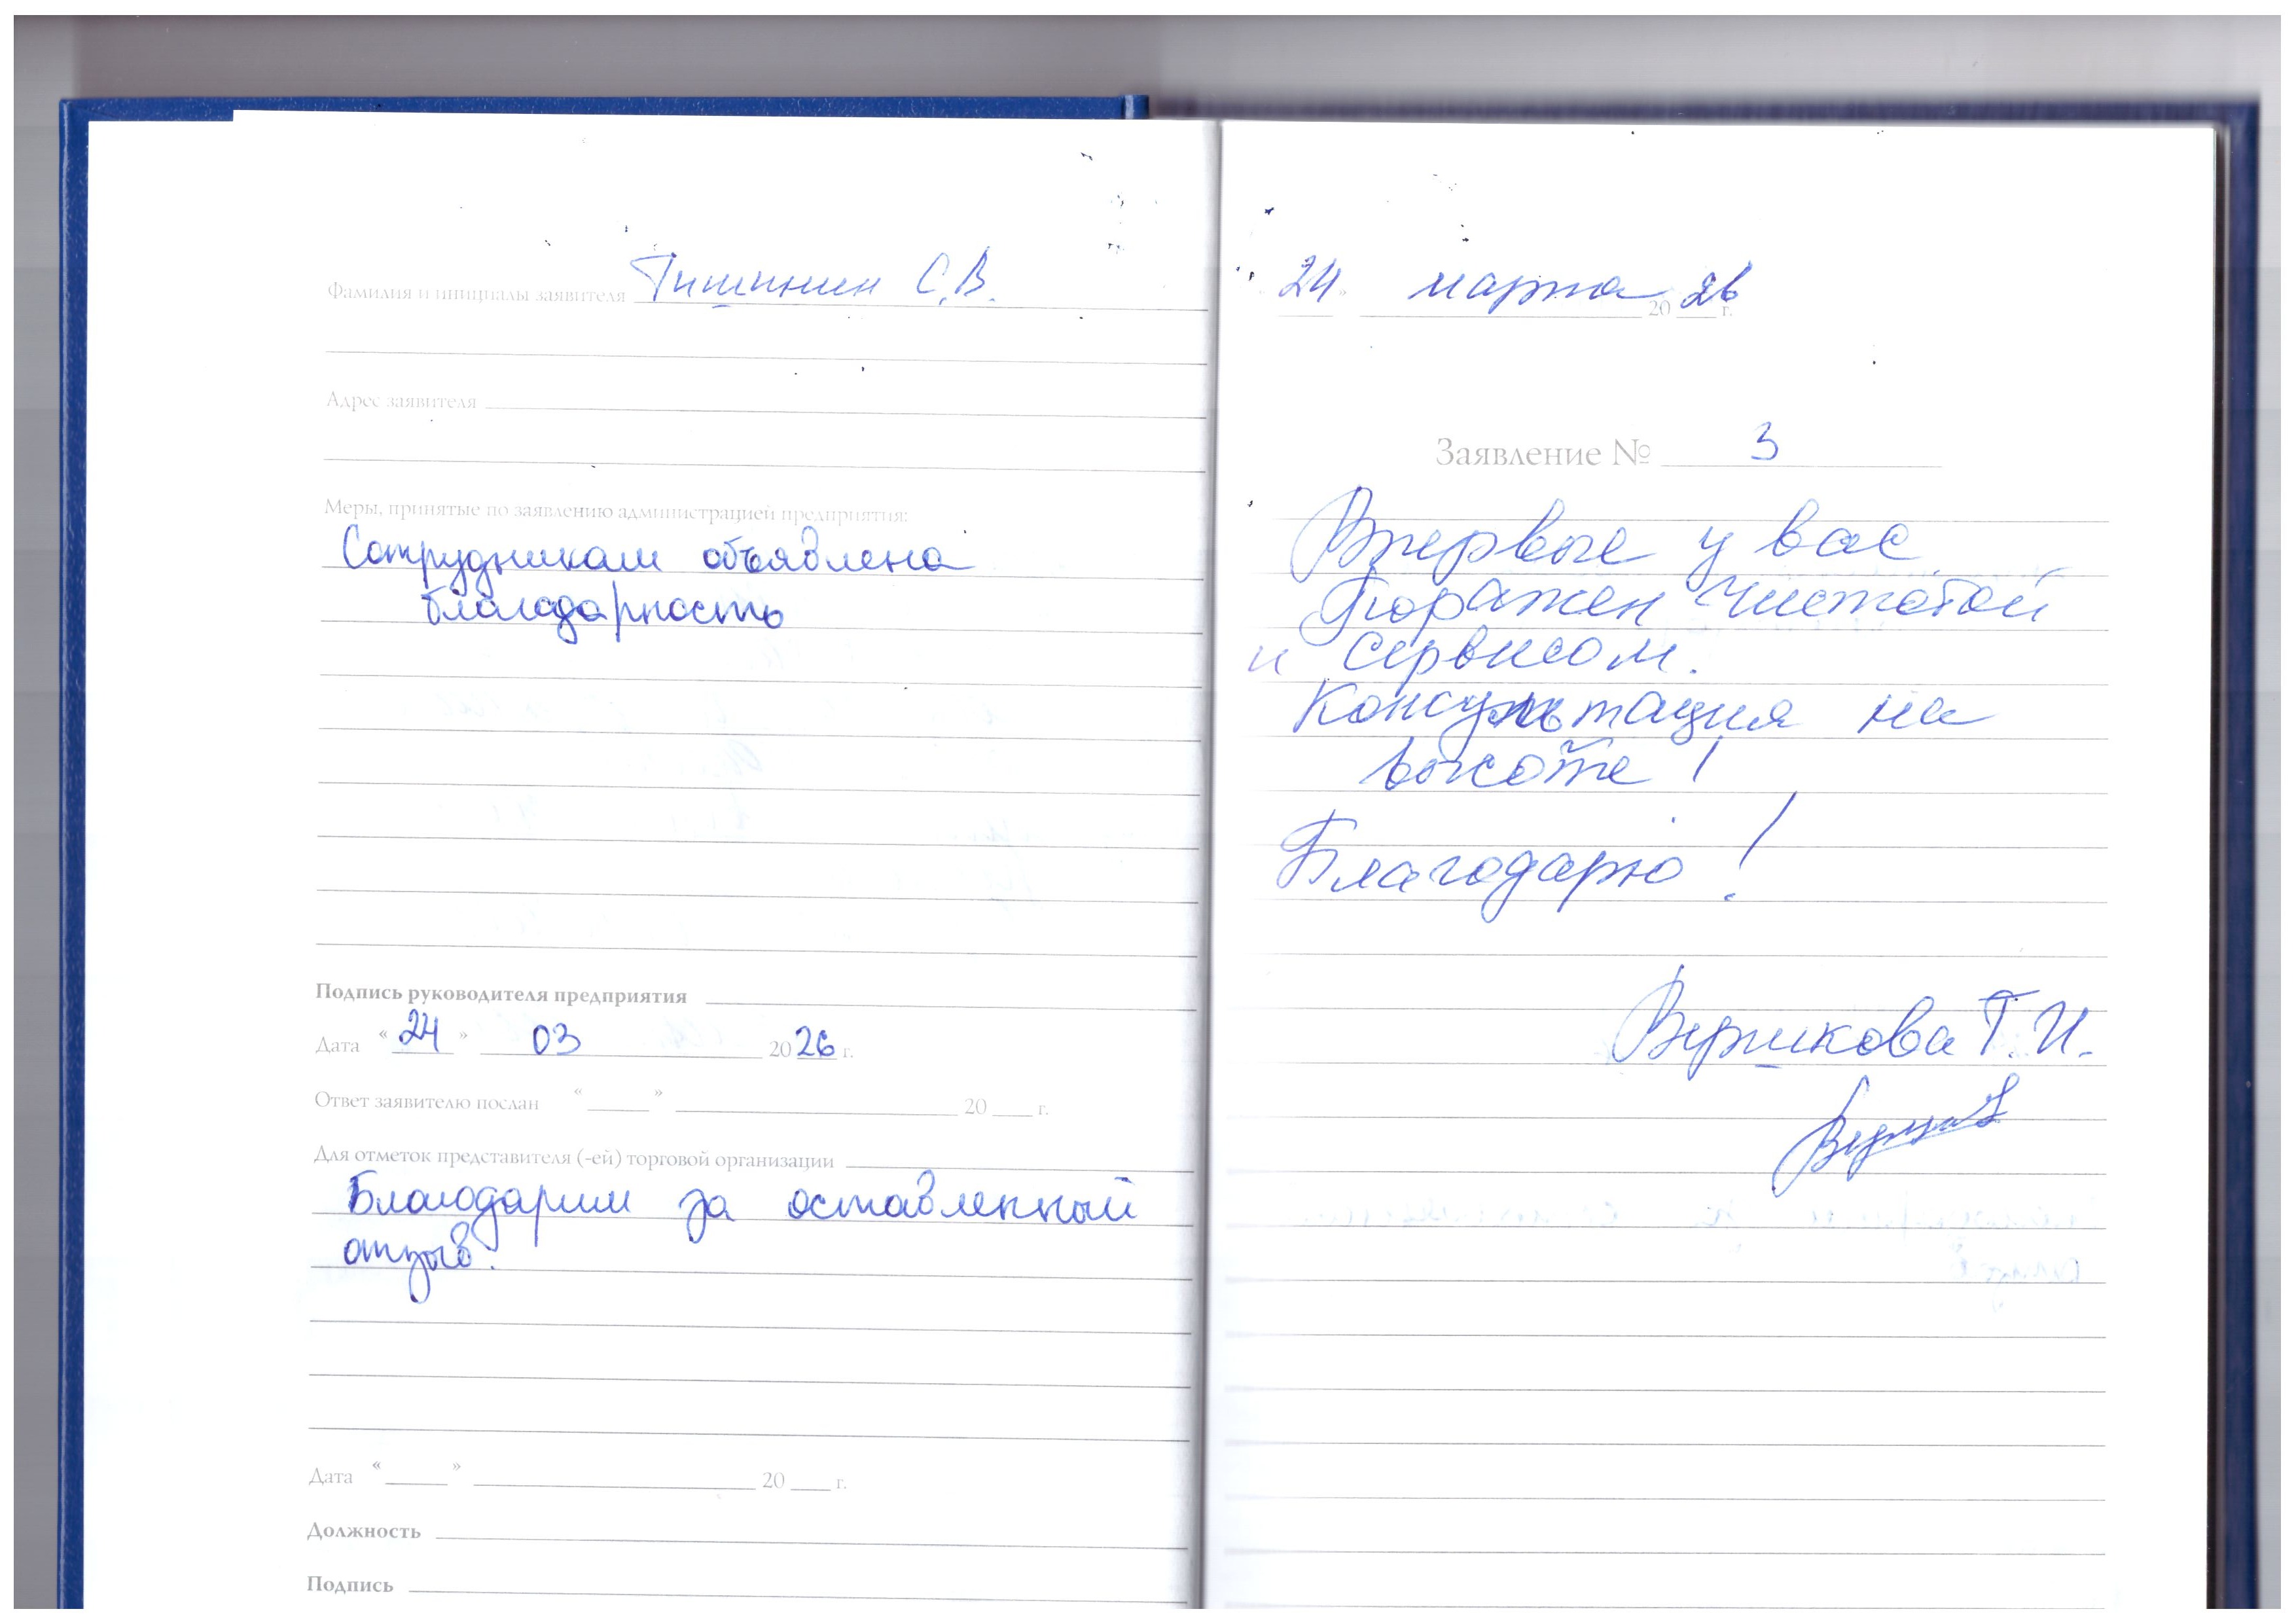 Фамилия и инициалы заявителя Тишинин С.В.
Адрес заявителя
Меры, принятые по заявлению администрацией предприятия:
Сотрудникам объявлена
благодарность
Подпись руководителя предприятия
Дата "24" 03 2026 г.
Ответ заявителю послан " " 20 г.
Для отметок представителя (-ей) торговой организации
Благодарим за оставленный
отзыв.
Дата " " 20 г.
Должность
Подпись
24 марта 2026 г.
Заявление № 3
Впервые у вас.
Поражен чистотой
и сервисом.
Консультация на
высоте!
Благодарю!
Вершкова Т.И.